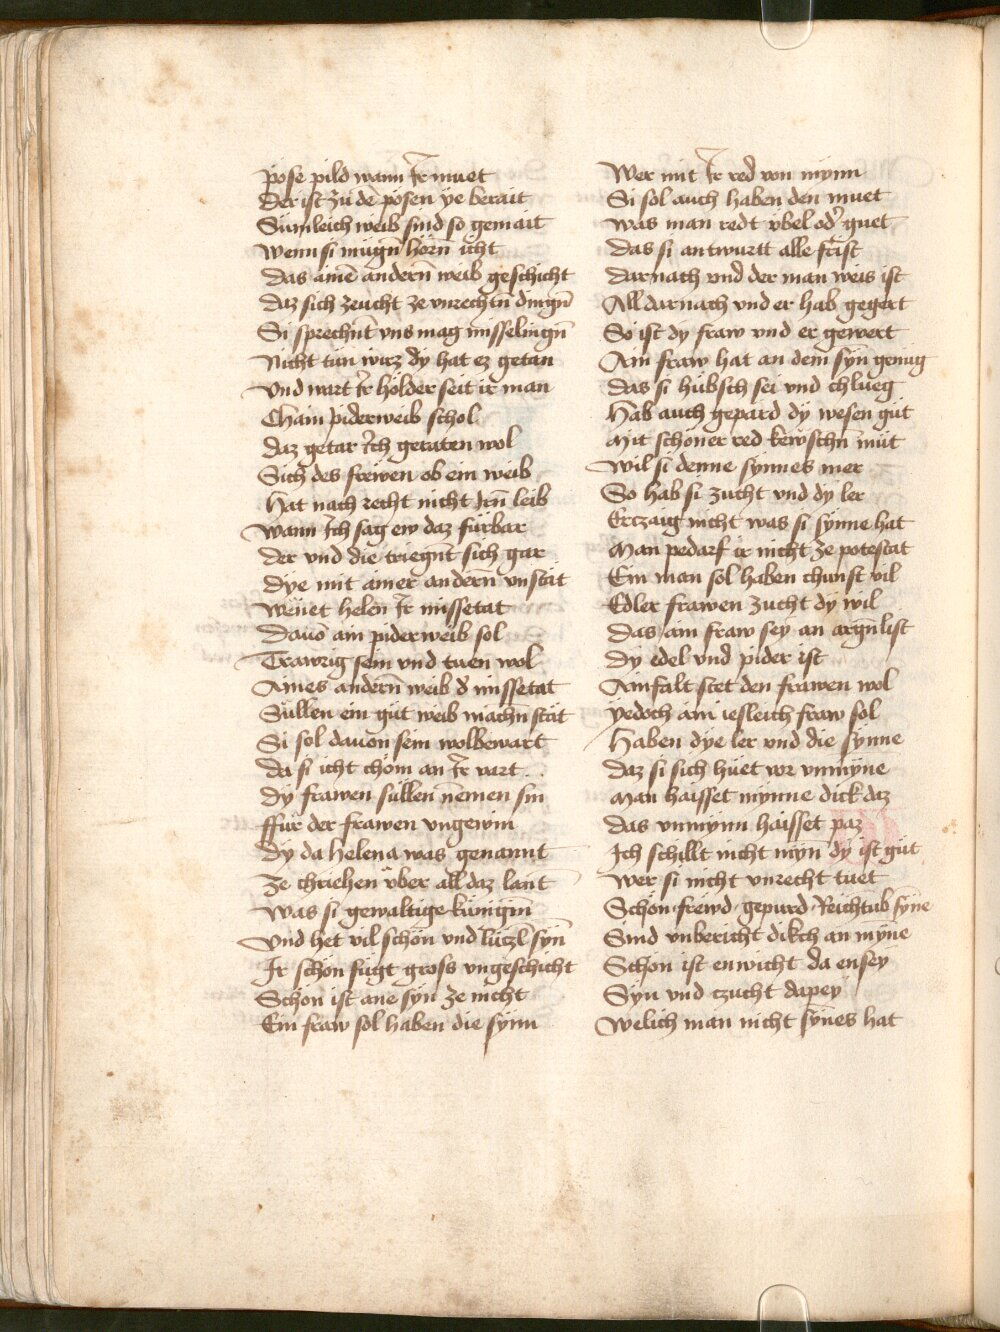 pose pild wann Ir muet
Der ist zu dē posen ye berait
Sumleich weib sind so gemait
Wenn si mugn̄ horn̄ icht
Das ainē andern̄ weib geschicht
Daz sich zeucht ze vnrechtn̄ dingn̄
Si sprechnt vns mag misselingn̄
Nicht tun wirz dy hat ez getan
Vnd wart Ir holder seit ir man
Chain piderweib schol
Daz getar Ich geraten wol
Sich des frewen ob ein weib
Hat nach recht nicht Irn̄ leib
Wann Ich sag ew daz furbar
Der vnd die triegnt sich gar
Dye mit ainer andern̄ vnstat
Wenet helen Ir missetat
Dauō ain piderweib sol
Trawrig sein vnd tuen wol
Aines andern̄ weib d̄ missetat
Sullen ein gut weib machn̄ stat
Si sol dauon sein wolbewart
Da si icht chom an Ir vart
Dy frawen sullen nemen sin
ffur der frawen vngewin
Dy da helena was genannt
Ze chriehen vber all daz lant
Was si gewaltige kunigin
Vnd het vil schon vnd lutzl syn̄
Ir schon fugt gross vngeschicht
Schon ist ane syn ze nicht
Ein fraw sol haben die synn
Wer mit Ir red von mynn
Si sol auch haben den muet
Was man redt vbel od' guet
Das si antwurtt alle frist
Darnach vnd der man weis ist
All darnach vnd er hab gegert
So ist dy fraw vnd er gewert
Ain fraw hat an dem syn genug
Das si hubsch sei vnd chlueg
Hab auch gepard dy wesen gut
Mit schoner red kewschn̄ mut
Wil si denne synnes mer
So hab si zucht vnd dy ler
Erczaig nicht was si synne hat
Man pedarf ir nicht ze potestat
Ein man sol haben chunst vil
Edler frawen zucht dy wil
Das ain fraw sey an argn̄ list
Dy edel vnd pider ist
Ainfalt stet den frawen wol
yedoch ain iesleich fraw sol
Haben dye ler vnd die synne
Daz si sich huet vor vnmyne
Man haisset mynne dick daz
Das vnmynn haisset paz
Ich schillt nicht myn dy ist gut
Wer si nicht vnrecht tuet
Schon frewd gepurd Reichtub syne
Sind vnbericht dikch an myne
Schon ist enwicht da ensey
Syn vnd czucht dapey
Welich man nicht synes hat